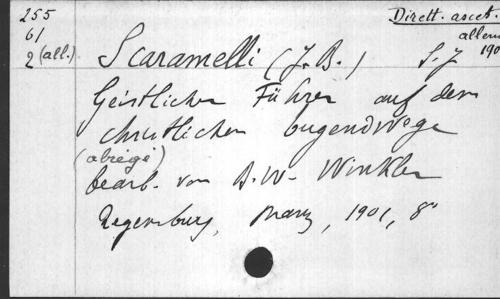 255
61
2 (all.)
Dirett. ascet.
allem
190
Scaramelli (J. B.) S. J
Geistlicher Führer auf dem
christlichen Tugendwege
(abrégé)
bearb. von B. W. Winkler
Regensburg, Manz, 1901, 8°